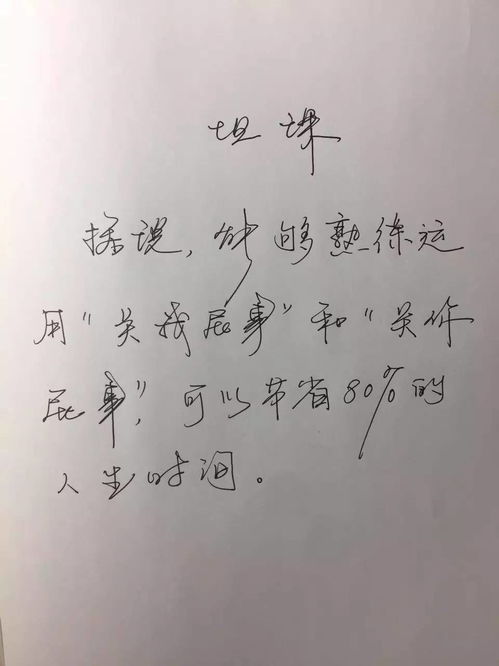 坦课
据说，能够熟练运
用“关我屁事”和“关你
屁事”，可以节省80%的
人生时间。